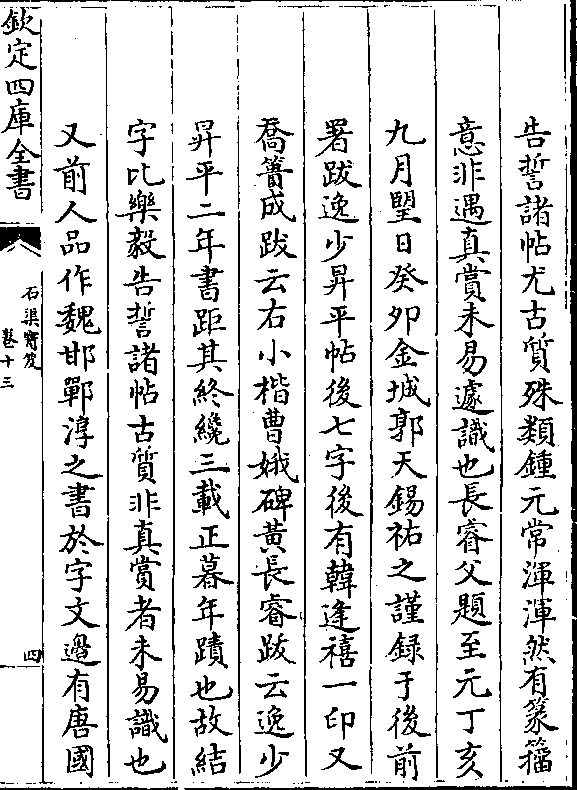 告誓諸帖尤古質殊類鍾元常渾渾然有篆籀
意非遇真賞未易遽識也長睿父題至元丁亥
九月朢日癸夘金城郭天錫祐之謹録于後前
署跋逸少昇平帖後七字後有韓逢禧一印又
喬簣成跋云右小楷曹娥碑黃長睿跋云逸少
昇平二年書距其終纔三載正暮年蹟也故結
字比樂毅告誓諸帖古質非真賞者未易識也
又前人品作魏邯鄲淳之書於字文邊有唐國
欽定四庫全書
石渠寳笈
卷十三
四